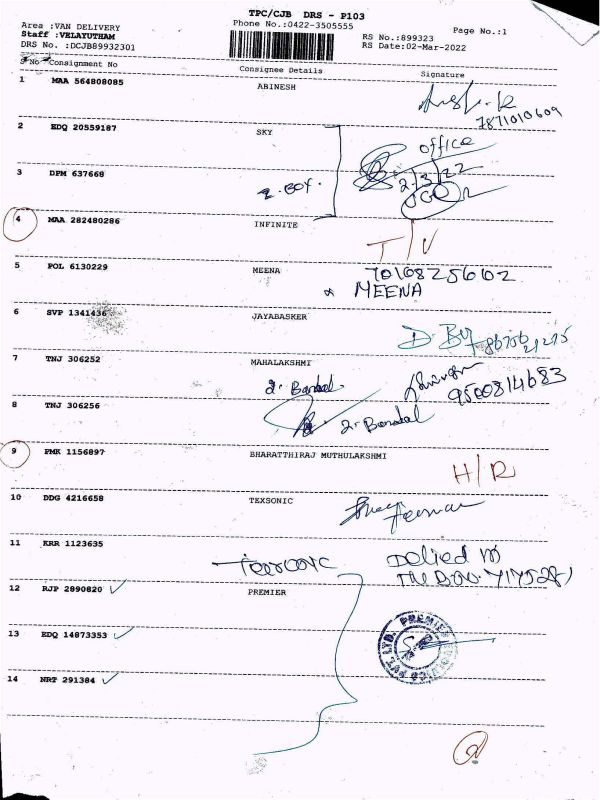 TPC/CJB DRS - P103
Area :VAN DELIVERY
Phone No.:0422-3505555
Page No.:1
Staff :VELAYUTHAM
RS No.:899323
DRS No. :DCJB89932301
RS Date:02-Mar-2022
S No Consignment No
Consignee Details
Signature
1 MAA 564808085
ABINESH
7871010609
2 EDQ 20559187
SKY
office
3 DPM 637668
2/3/22
2. BOX.
4 MAA 282480286
INFINITE
T/V
5 POL 6130229
MEENA
7016825602
MEENA
6 SVP 1341436
JAYABASKER
7 TNJ 306252
MAHALAKSHMI
9500814683
8 TNJ 306256
9 PMK 1156897
BHARATTHIRAJ MUTHULAKSHMI
H/R
10 DDG 4216658
TEXSONIC
11 KRR 1123635
12 RJP 2890820
PREMIER
13 EDQ 14873353
PREMIER
PVT. LTD.
14 NRT 291384